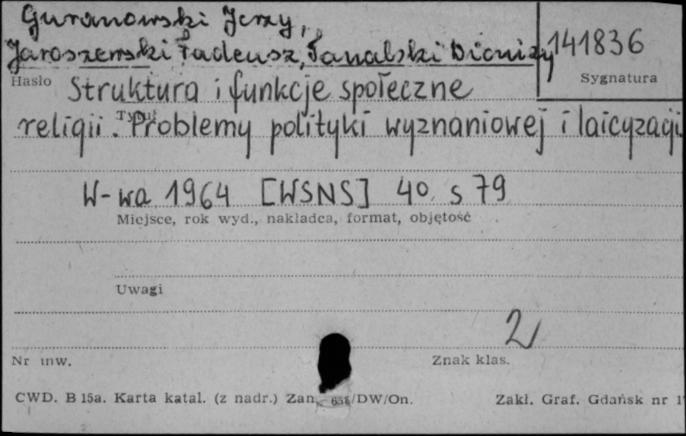 Guranowski Jerzy,
Jaroszewski Tadeusz, Tanalski Dionizy
141836
Hasło
Sygnatura
Struktura i funkcje społeczne
religii. Problemy polityki wyznaniowej i laicyzacji
Tytuł
W-wa 1964 [WSNS] 4o, s 79
Miejsce, rok wyd., nakładca, format, objętość
Uwagi
2
Nr inw.
Znak klas.
CWD. B 15a. Karta katal. (z nadr.) Zam. 658/DW/On.
Zakł. Graf. Gdańsk nr 1